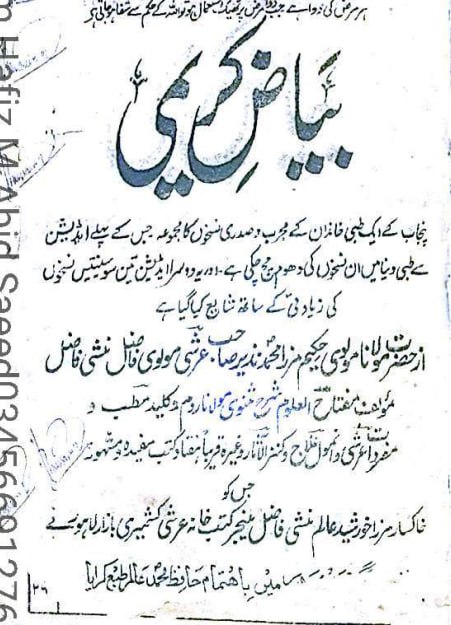 ہر مرض کی دوا ہے جب دوا مرض پر ٹھیک استعمال ہو تو اللہ کے حکم سے شفا ہو جاتی ہے
بیاض کریمی
پنجاب کے ایک طبی خاندان کے مجرب و صدری نسخوں کا مجموعہ جس کے پہلے ایڈیشن
سے طبی دنیا میں ان نسخوں کی دھوم مچ چکی ہے۔ اور یہ دوسرا ایڈیشن تین سو سینتیس نسخوں
کی زیادتی کے ساتھ شایع کیا گیا ہے
از حضرت مولانا مولوی حکیم مرزا محمد نذیر صاحب عرشی مولوی فاضل منشی فاضل
مؤلف مفتاح العلوم شرح مثنوی مولانا روم و کلید مطب و
مفردات عرشی و انمول علاج و کنز الآثار وغیرہ قریباً ہفتاد کتب مفیدہ و مشہورہ
جس کو
خاکسار مرزا خورشید عالم منشی فاضل مینجر کتب خانہ عرشی کشمیری بازار لاہور نے
میں باہتمام حافظ محمد عالم طبع کرایا
۲۹
Hafiz M Abid Saeed 03456691276